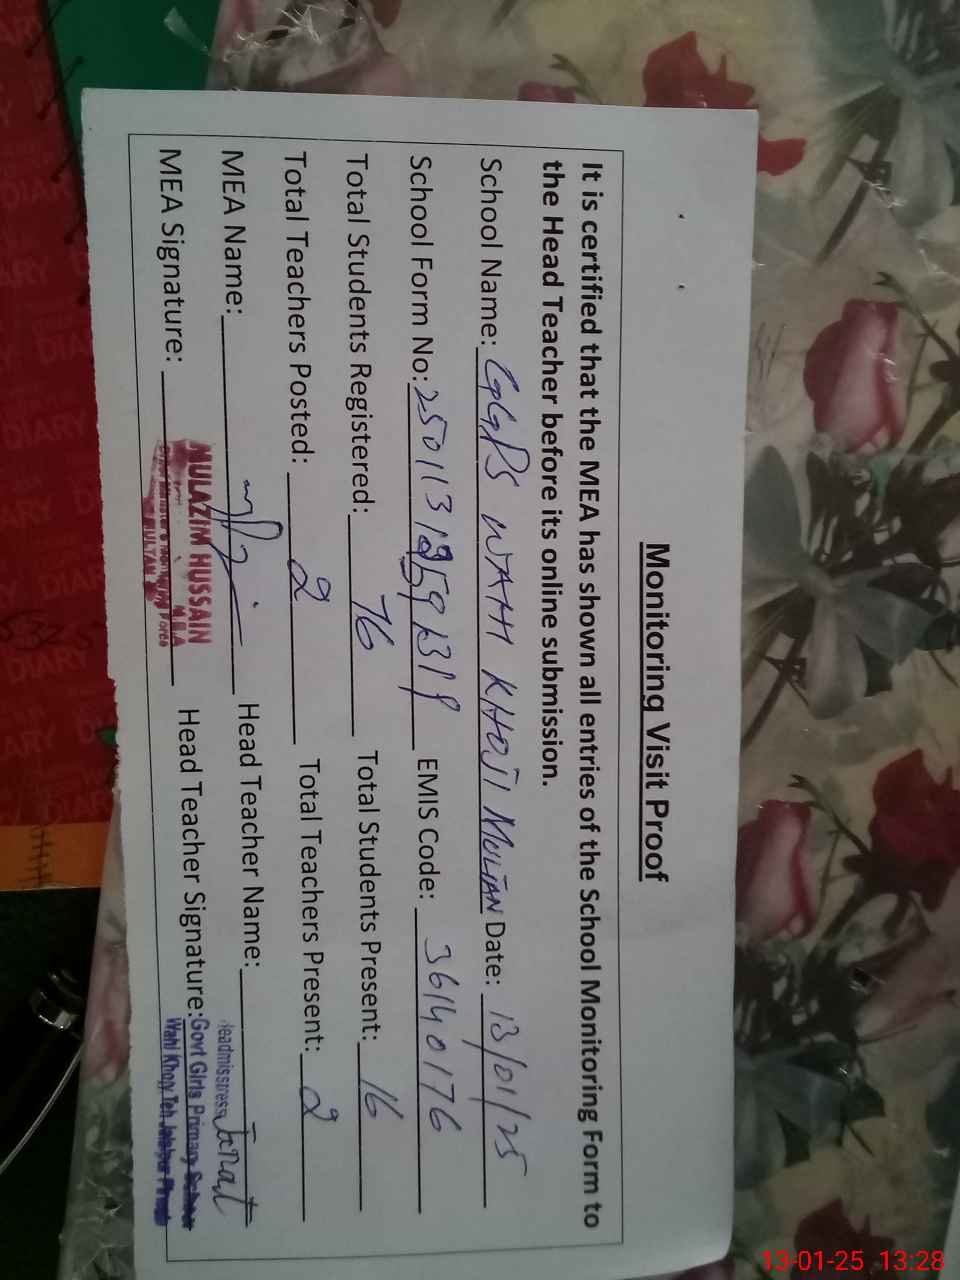 Monitoring Visit Proof
It is certified that the MEA has shown all entries of the School Monitoring Form to
the Head Teacher before its online submission.
School Name: GGPS WAHI KHOJI MULIAN Date: 13/01/25
School Form No: EMIS Code: 36140176
Total Students Registered: 76 Total Students Present: 16
Total Teachers Posted: 2 Total Teachers Present: 2
MEA Name: Head Teacher Name:
MEA Signature: Head Teacher Signature:
MULAZIM HUSSAIN
MEA
Headmisstress
Govt Girls Primary School
13-01-25 13:28
DIARY